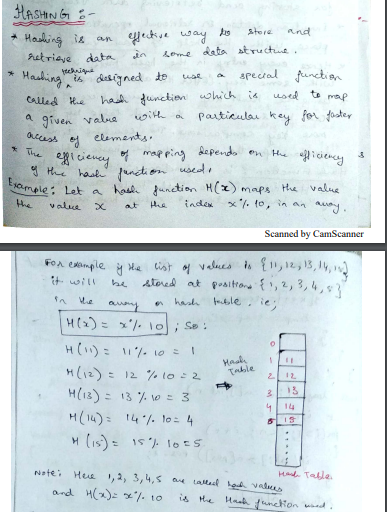 HASHING :-
* Hashing is an effective way to store and
retrieve data in some data structure.
* Hashing technique is designed to use a special function
called the hash function which is used to map
a given value with a particular key for faster
access of elements.
* The efficiency of mapping depends on the efficiency
of the hash function used.
Example: Let a hash function H(x) maps the value
the value x at the index x % 10, in an array.
Scanned by CamScanner
For example if the list of values is {11, 12, 13, 14, 15}
it will be stored at positions {1, 2, 3, 4, 5}
in the array or hash table, ie;
H(x) = x % 10 ; So:
H(11) = 11 % 10 = 1
H(12) = 12 % 10 = 2
H(13) = 13 % 10 = 3
H(14) = 14 % 10 = 4
H(15) = 15 % 10 = 5
Hash
Table
0
1 11
2 12
3 13
4 14
5 15
Hash Table.
Note: Here 1, 2, 3, 4, 5 are called hash values
and H(x) = x % 10 is the Hash function used.